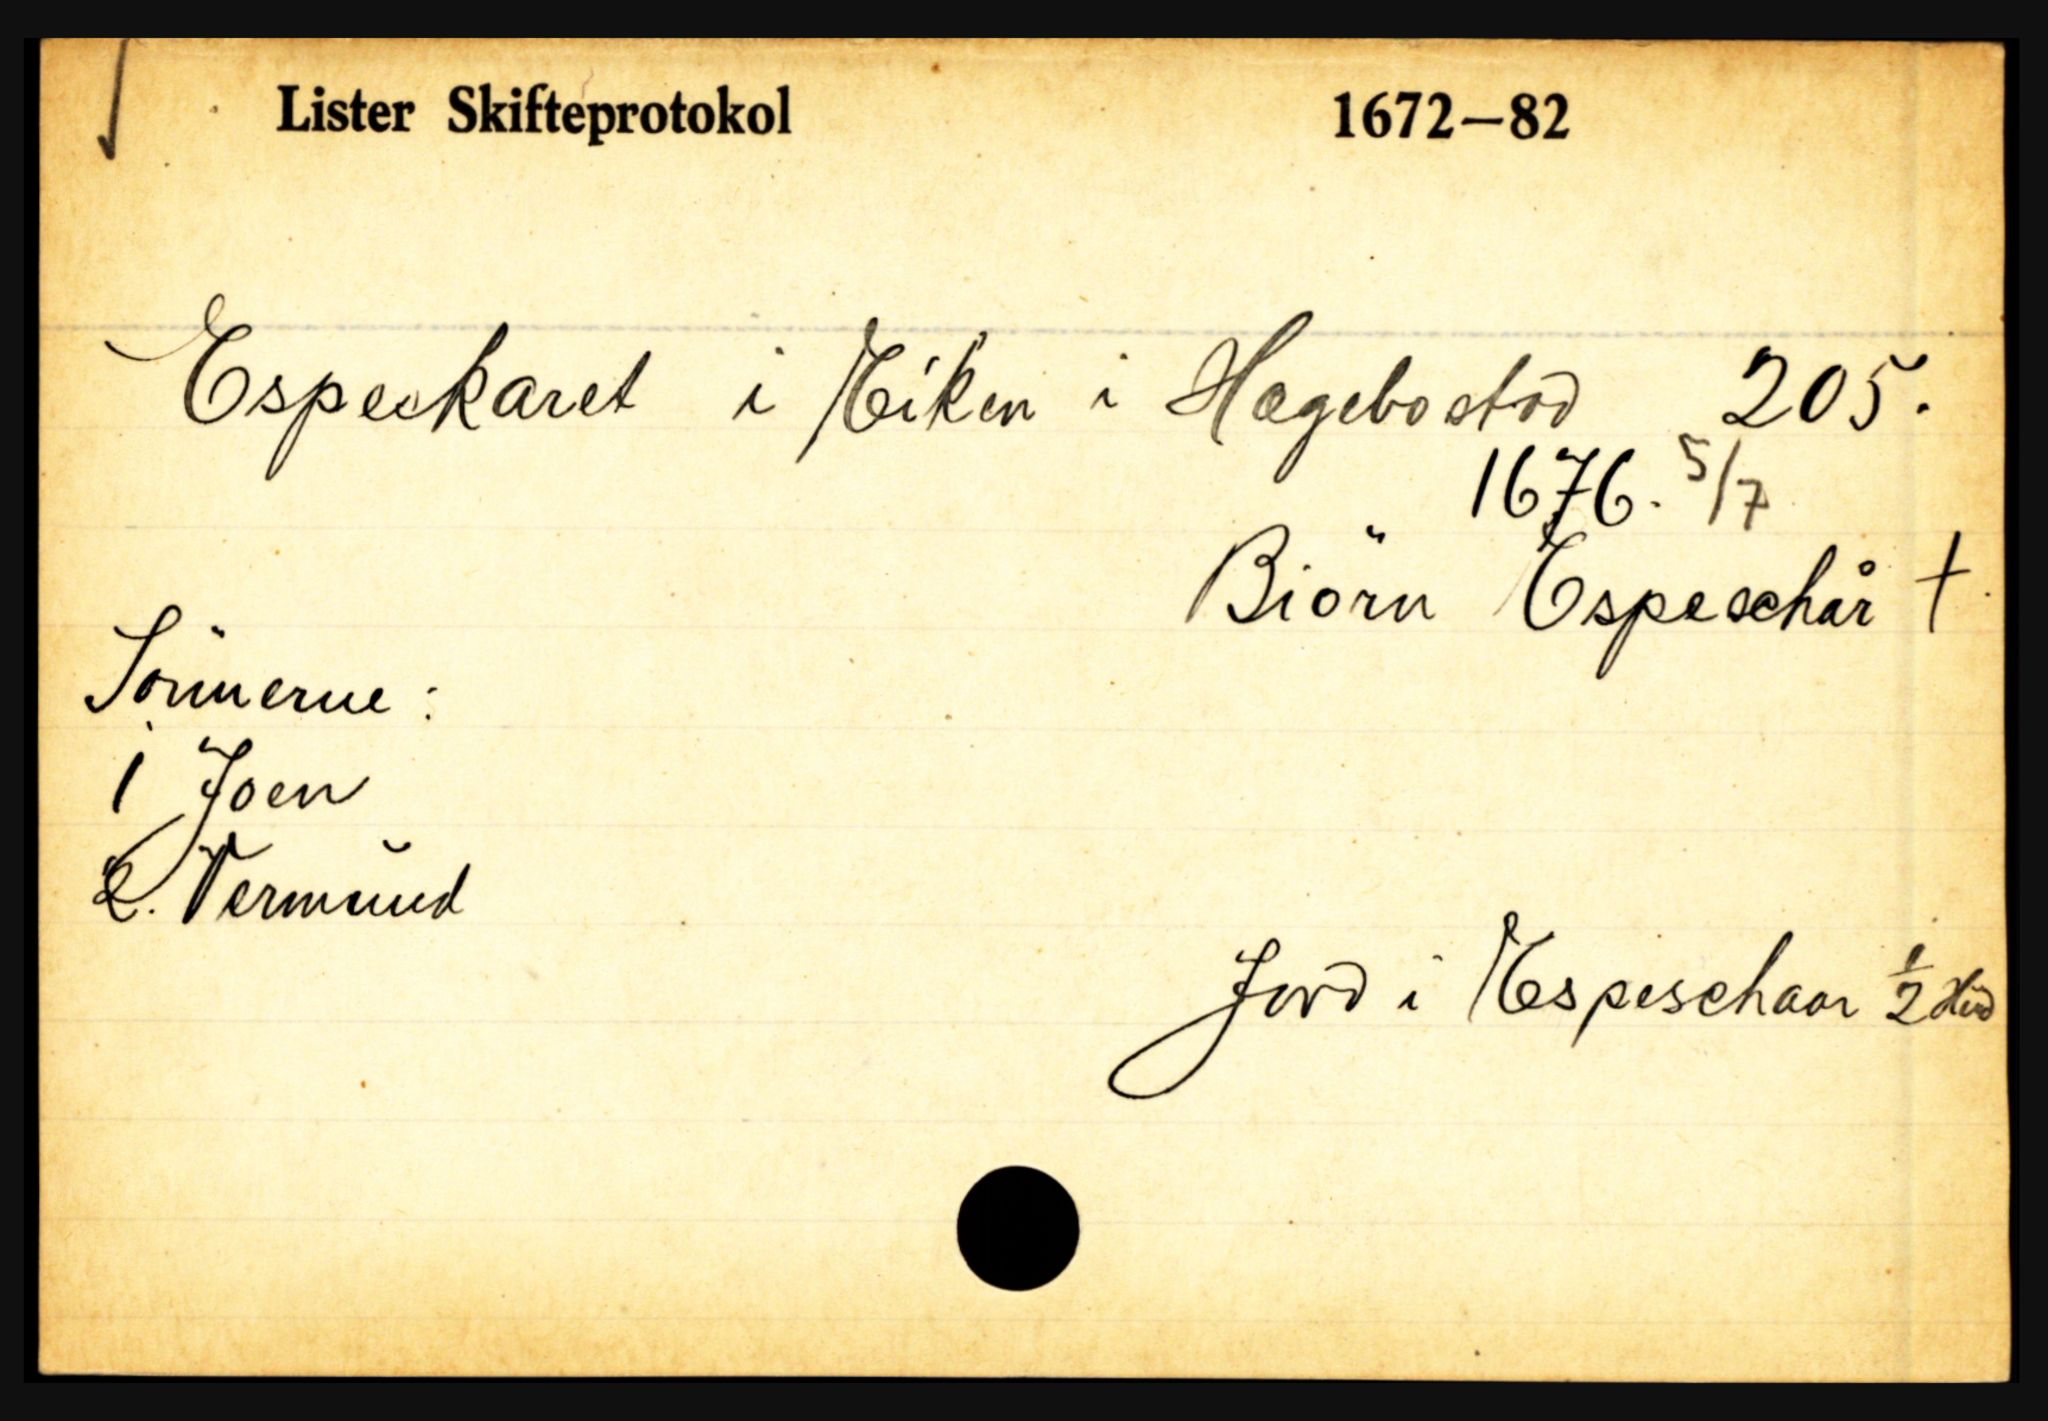 Lister Skifteprotokol 1672–82
Espeskaret i Eiken i Hægebostad 205.
1676. 5/7
Biörn Espeschår †
Sönnerne:
1 Joen
2. Vermund
Jord i Espeschaar 1/2 Hud